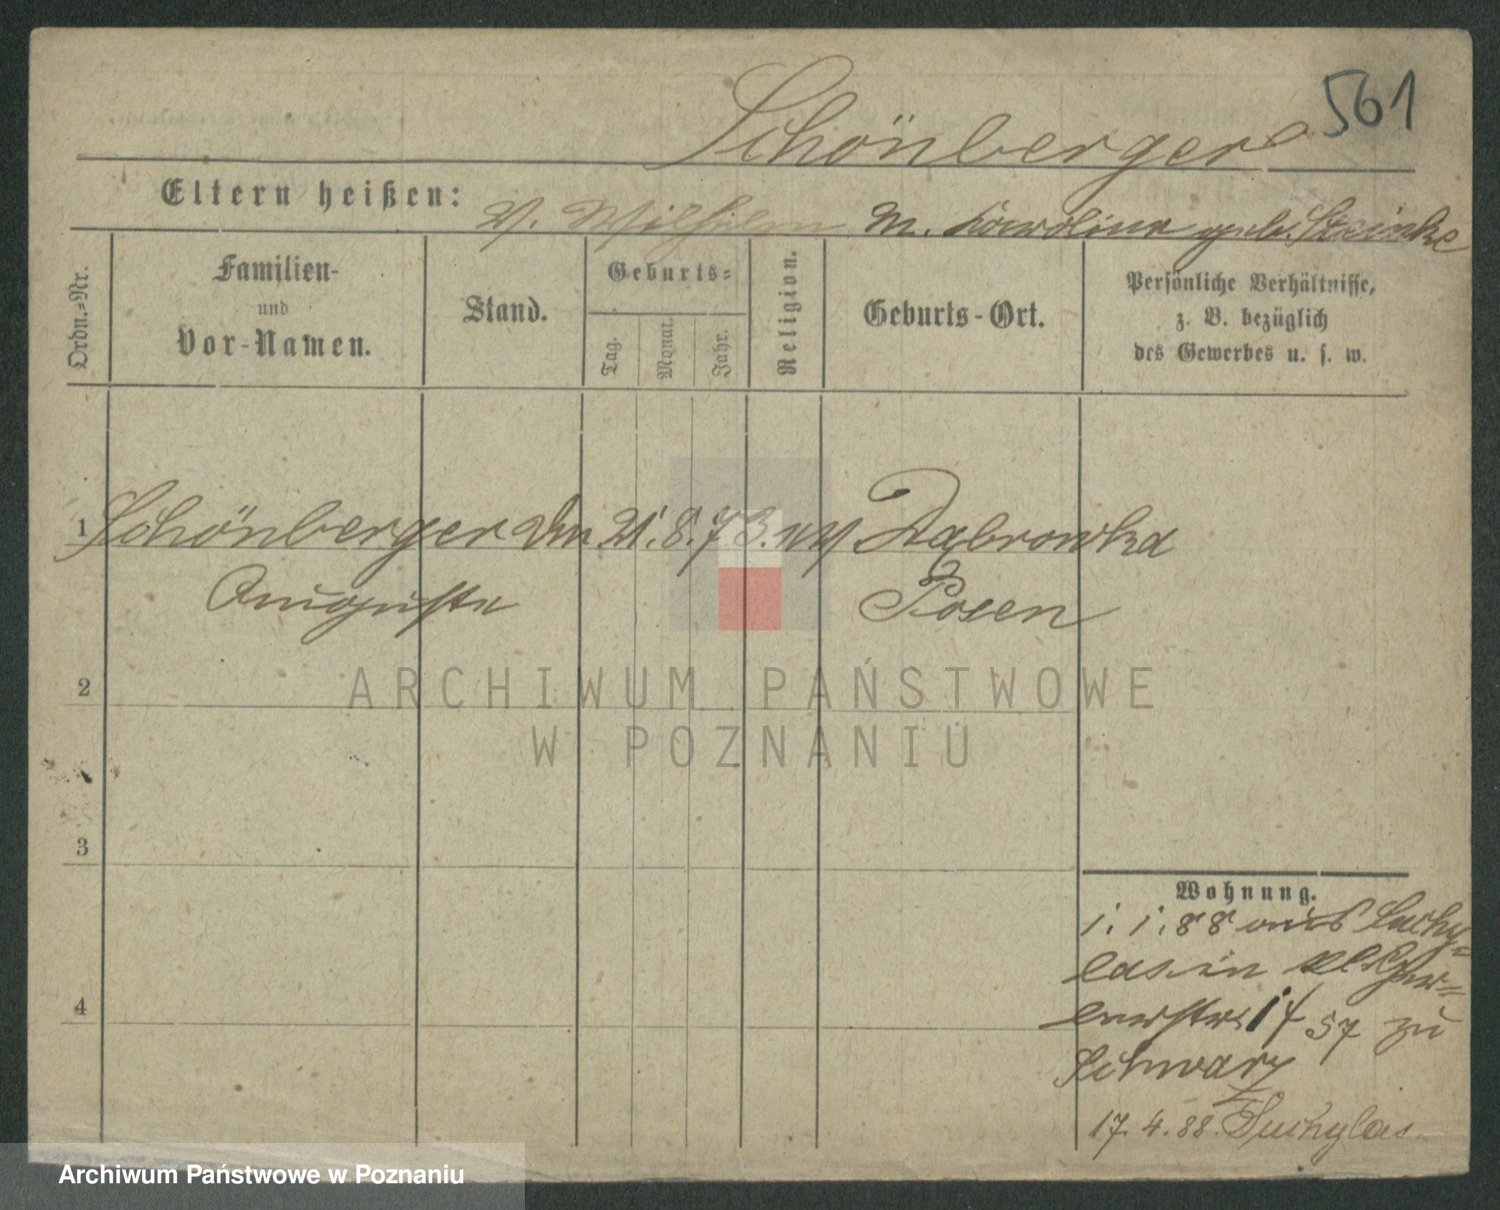 561
Schönberger
Eltern heißen: V. Wilhelm M. Karolina geb. Steinke
Ordn.-Nr.
Familien-
und
Vor-Namen.
Stand.
Geburts-
Tag.
Monat.
Jahr.
Religion.
Geburts-Ort.
Persönliche Verhältnisse,
z. B. bezüglich
des Gewerbes u. s. w.
1 Schönberger 21. 8. 73. Dąbrowka
Auguste Posen
2
3
4
Wohnung.
1. 1. 88 aus Suchy-
las in Kl. Ger-
berstr. 57 zu
Schwarz
17. 4. 88. Suchylas
ARCHIWUM PAŃSTWOWE
W POZNANIU
Archiwum Państwowe w Poznaniu